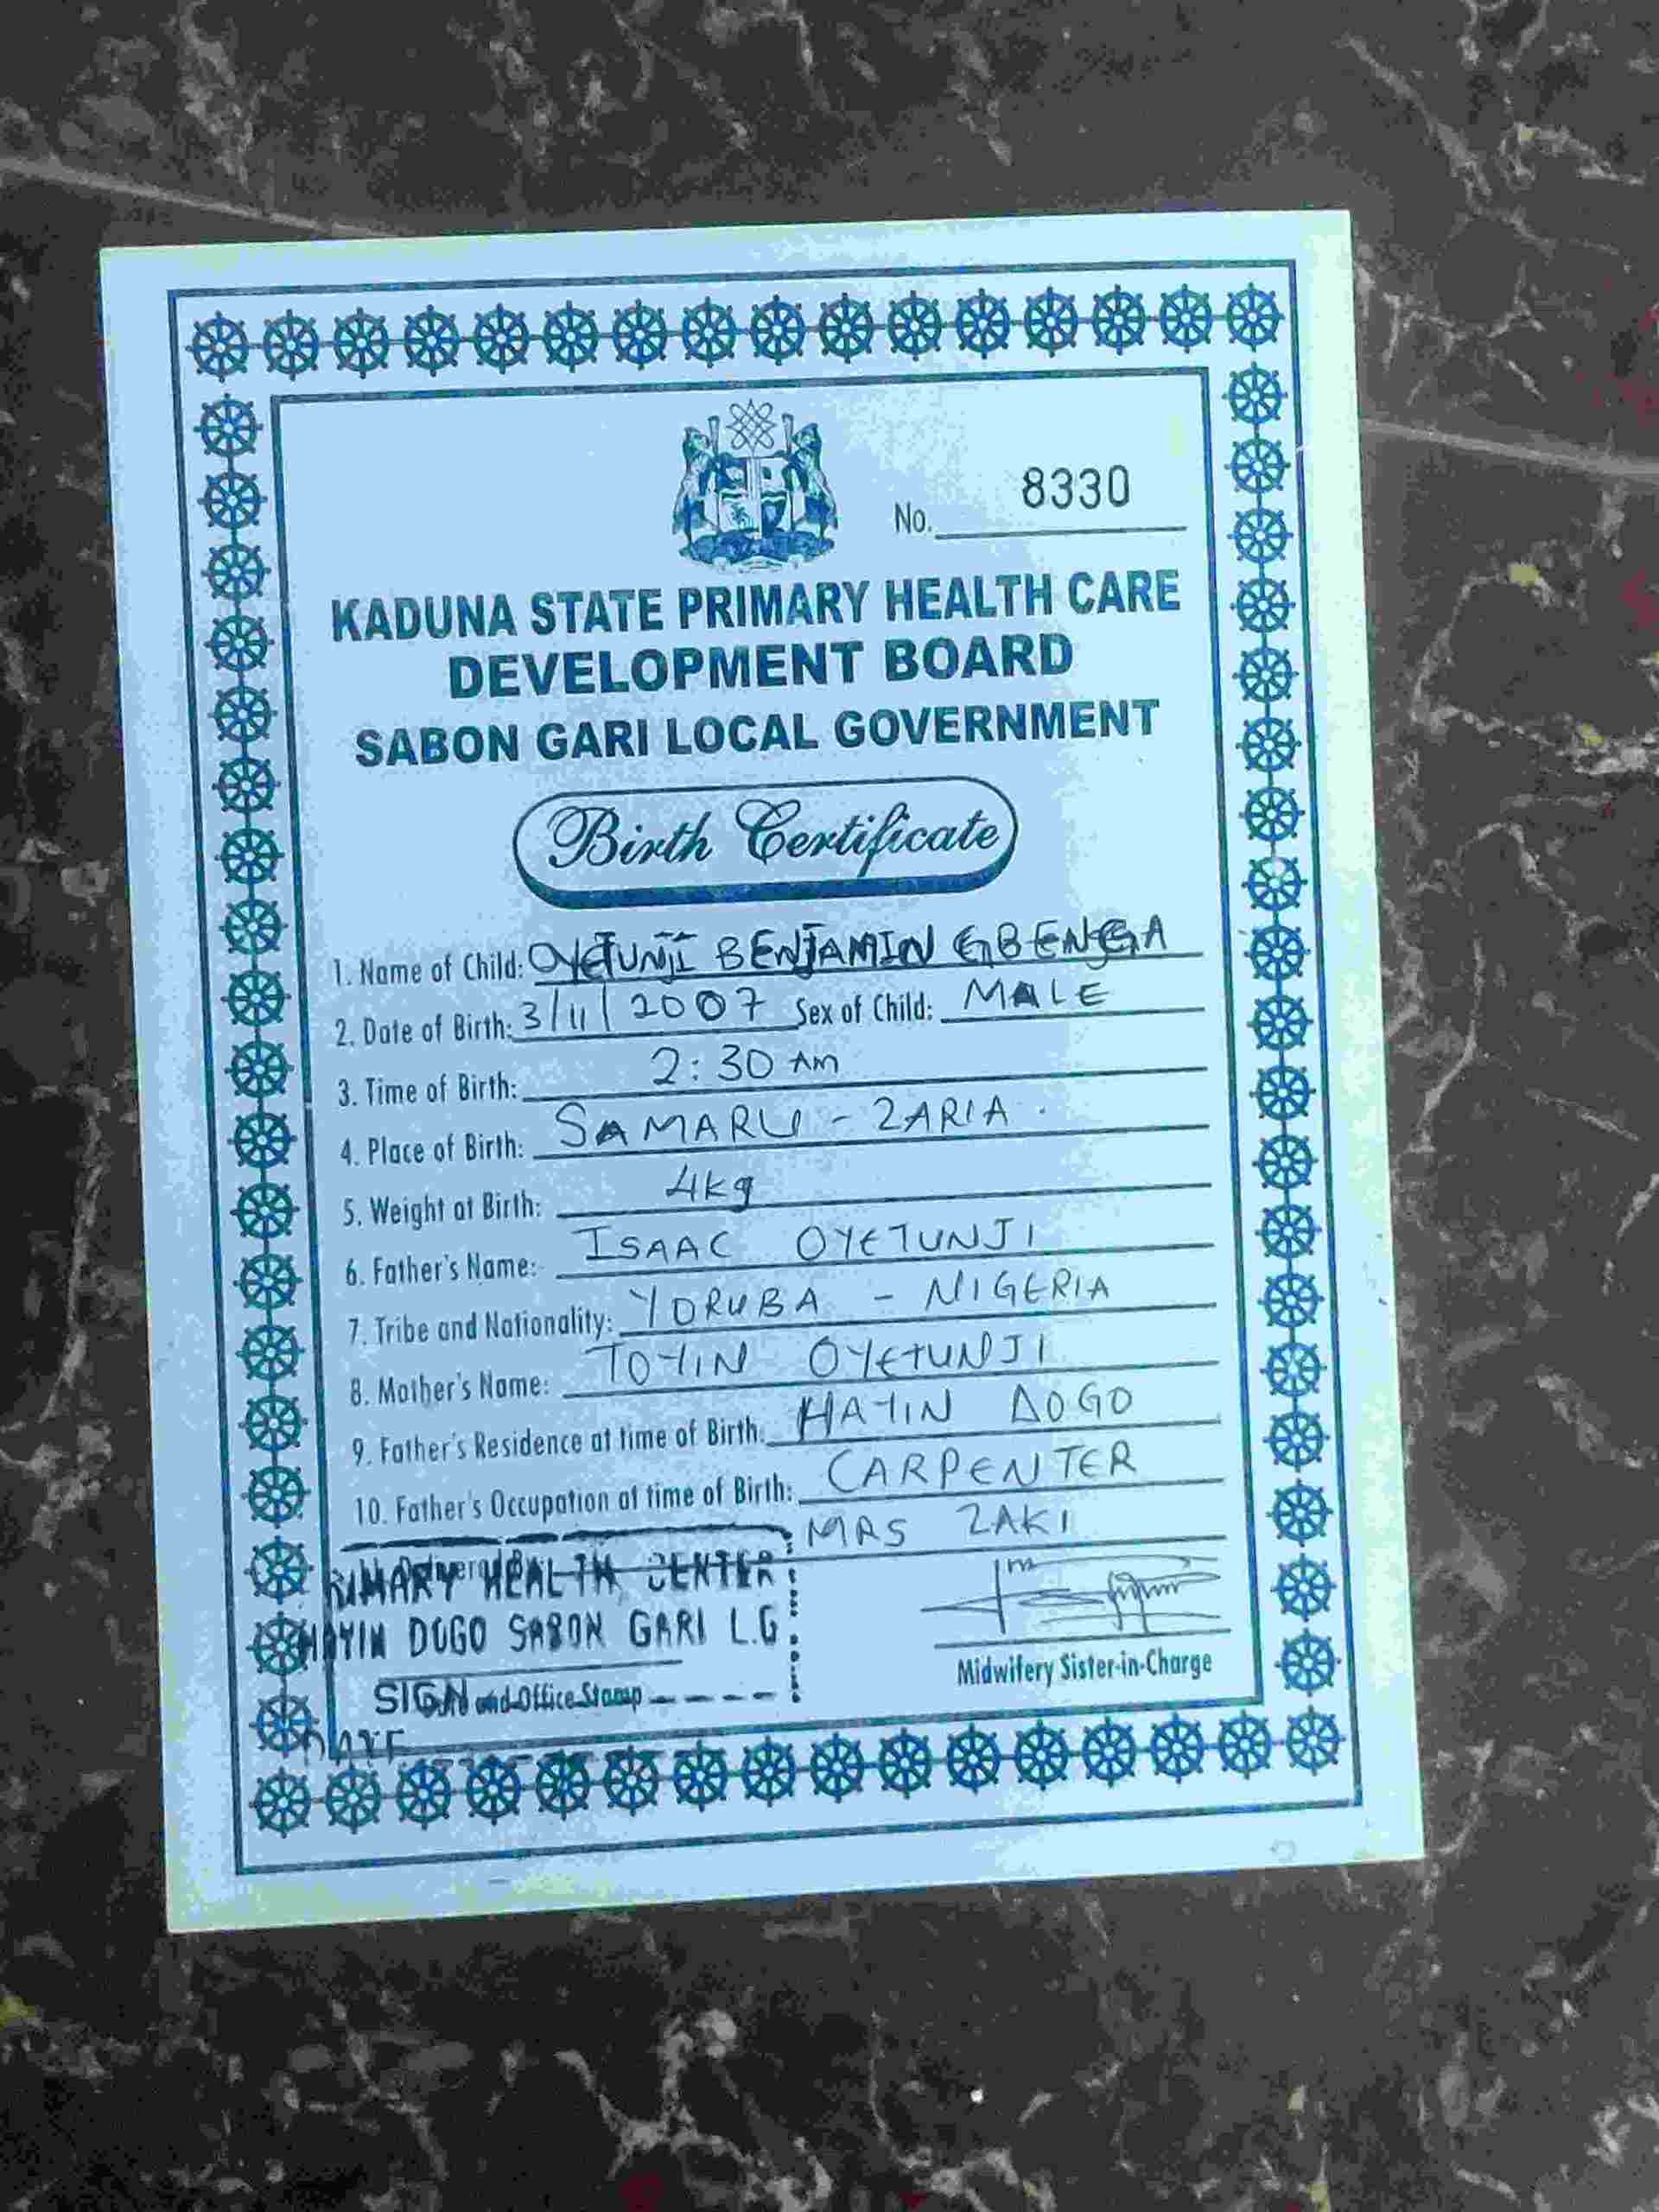 No. 8330
KADUNA STATE PRIMARY HEALTH CARE
DEVELOPMENT BOARD
SABON GARI LOCAL GOVERNMENT
Birth Certificate
1. Name of Child: OYETUNJI BENJAMIN GBENGA
2. Date of Birth: 3/11/2007 Sex of Child: MALE
3. Time of Birth: 2:30 AM
4. Place of Birth: SAMARU - ZARIA
5. Weight at Birth: 4kg
6. Father's Name: ISAAC OYETUNJI
7. Tribe and Nationality: YORUBA - NIGERIA
8. Mother's Name: TOYIN OYETUNJI
9. Father's Residence at time of Birth: HAYIN DOGO
10. Father's Occupation at time of Birth: CARPENTER
MRS ZAKI
HEALTH CENTER
DOGO SABON GARI L.G.
SIGN and Office Stamp
Midwifery Sister-in-Charge